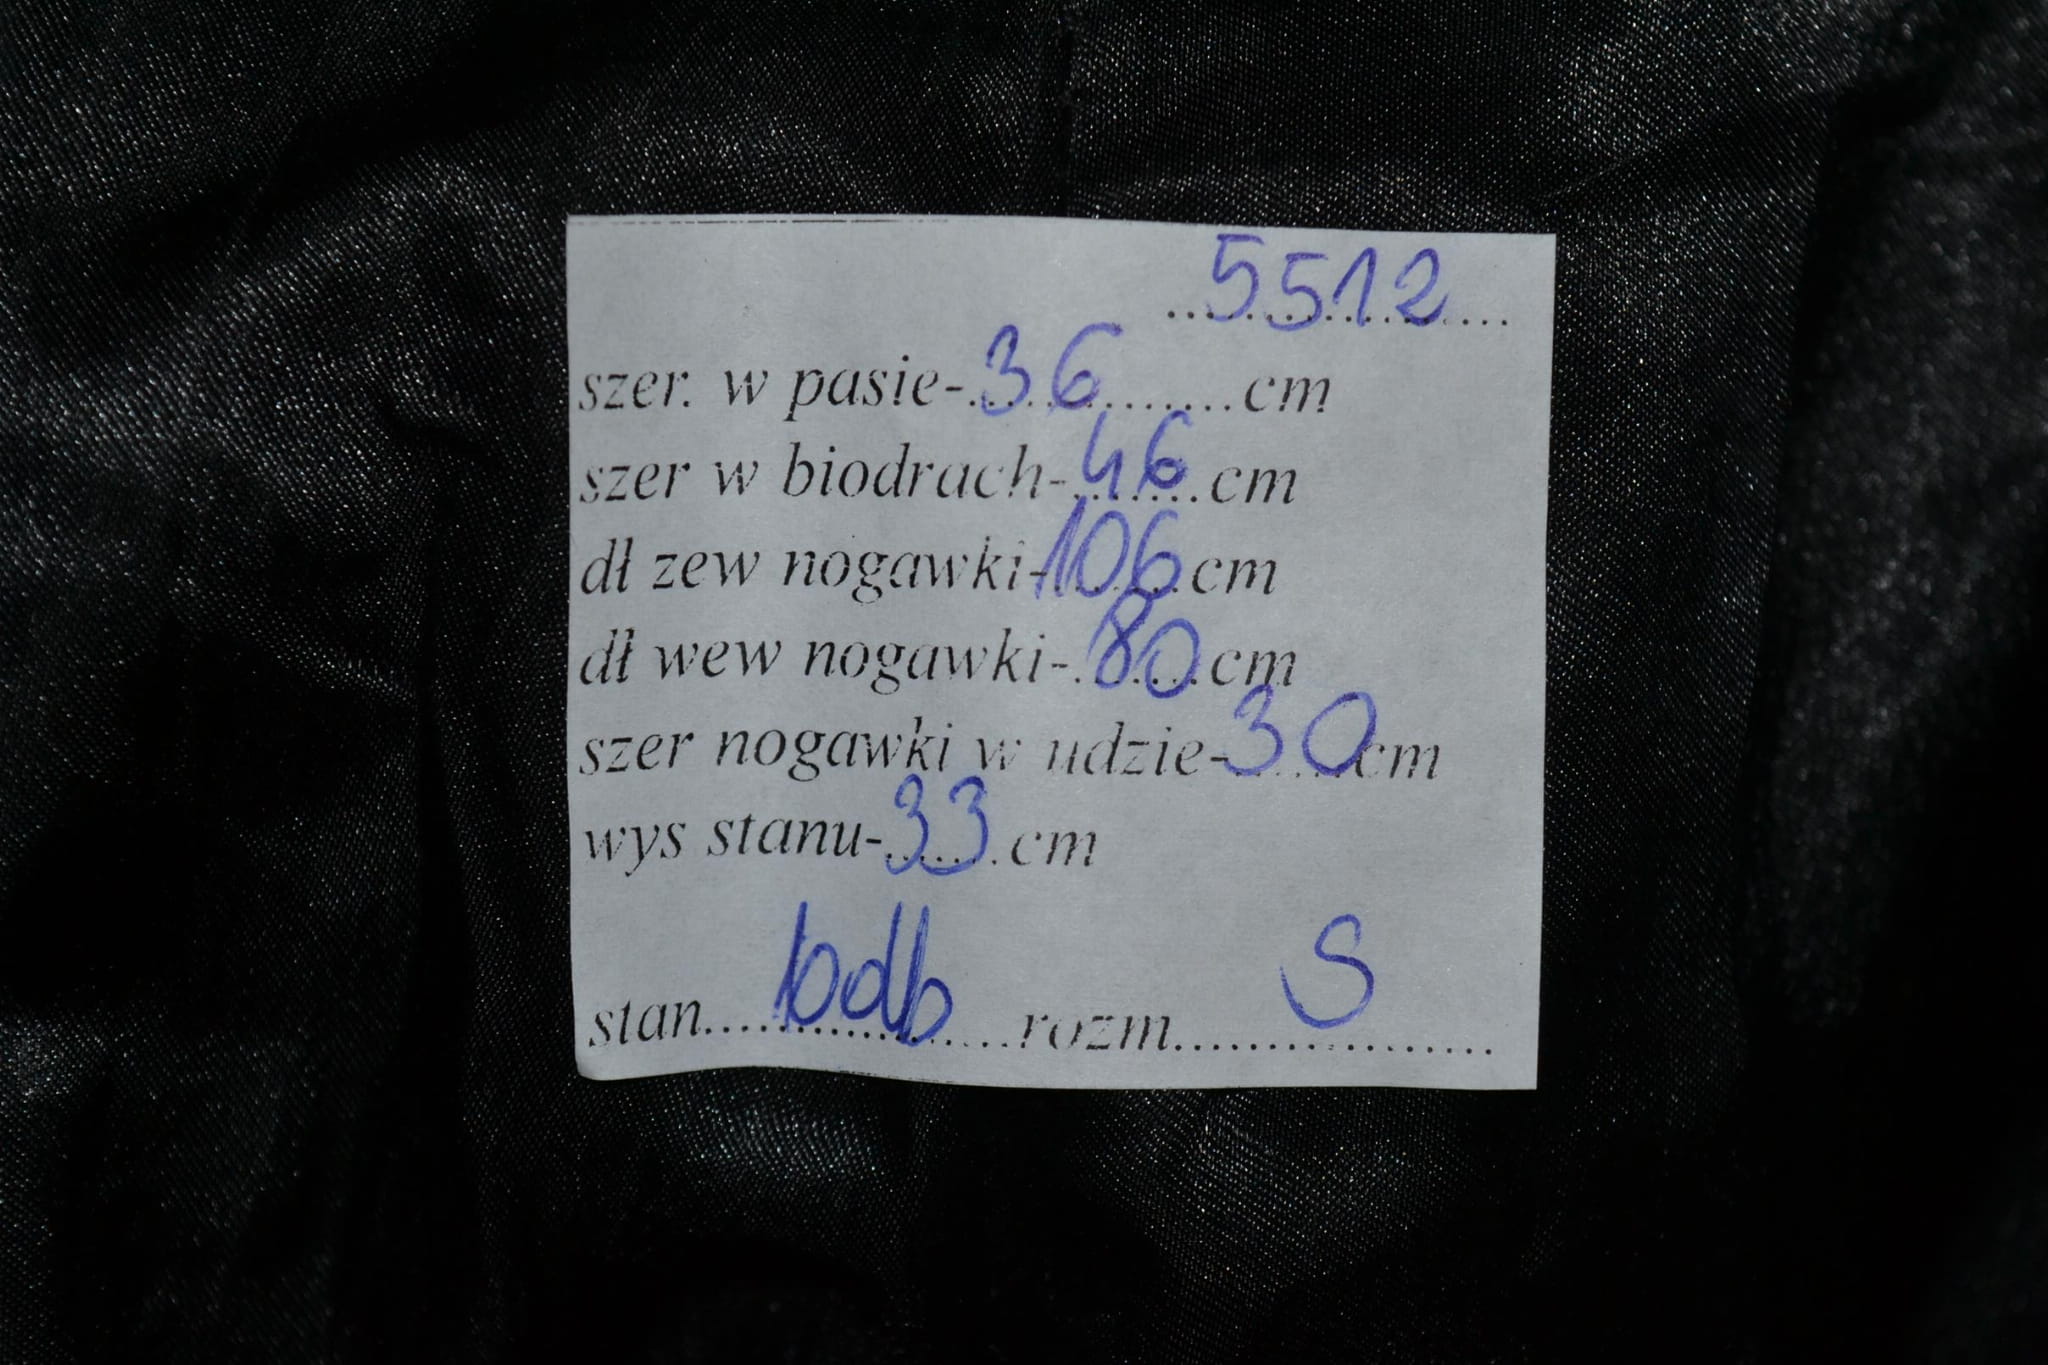 5512
szer. w pasie-36cm
szer w biodrach-46cm
dł zew nogawki-106cm
dł wew nogawki-80cm
szer nogawki w udzie-30cm
wys stanu-33cm
stan bdb rozm S